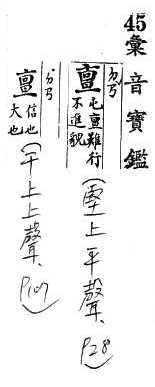 45彙音寶鑑
ㄉㄢ
亶 屯亶難行
不進貌 (堅上平聲、P28)
ㄉㄢˇ
亶 信也
大也 (干上上聲、P107)